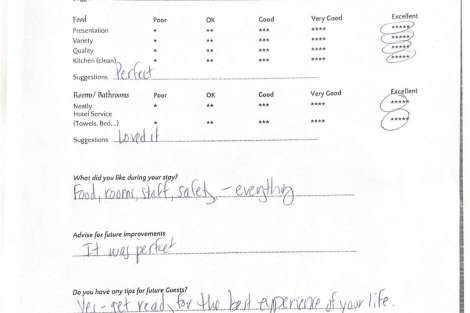 Food Poor OK Good Very Good Excellent
Presentation * ** *** **** *****
Variety * ** *** **** *****
Quality * ** *** **** *****
Kitchen (clean) * ** *** **** *****
Suggestions Perfect
Rooms/Bathrooms Poor OK Good Very Good Excellent
Neatly * ** *** **** *****
Hotel Service
(Towels, Bed...) * ** *** **** *****
Suggestions Loved it
What did you like during your stay?
Food, rooms, staff, safety, - everything
Advise for future improvements
It was perfect
Do you have any tips for future Guests?
Yes - get ready for the best experience of your life.